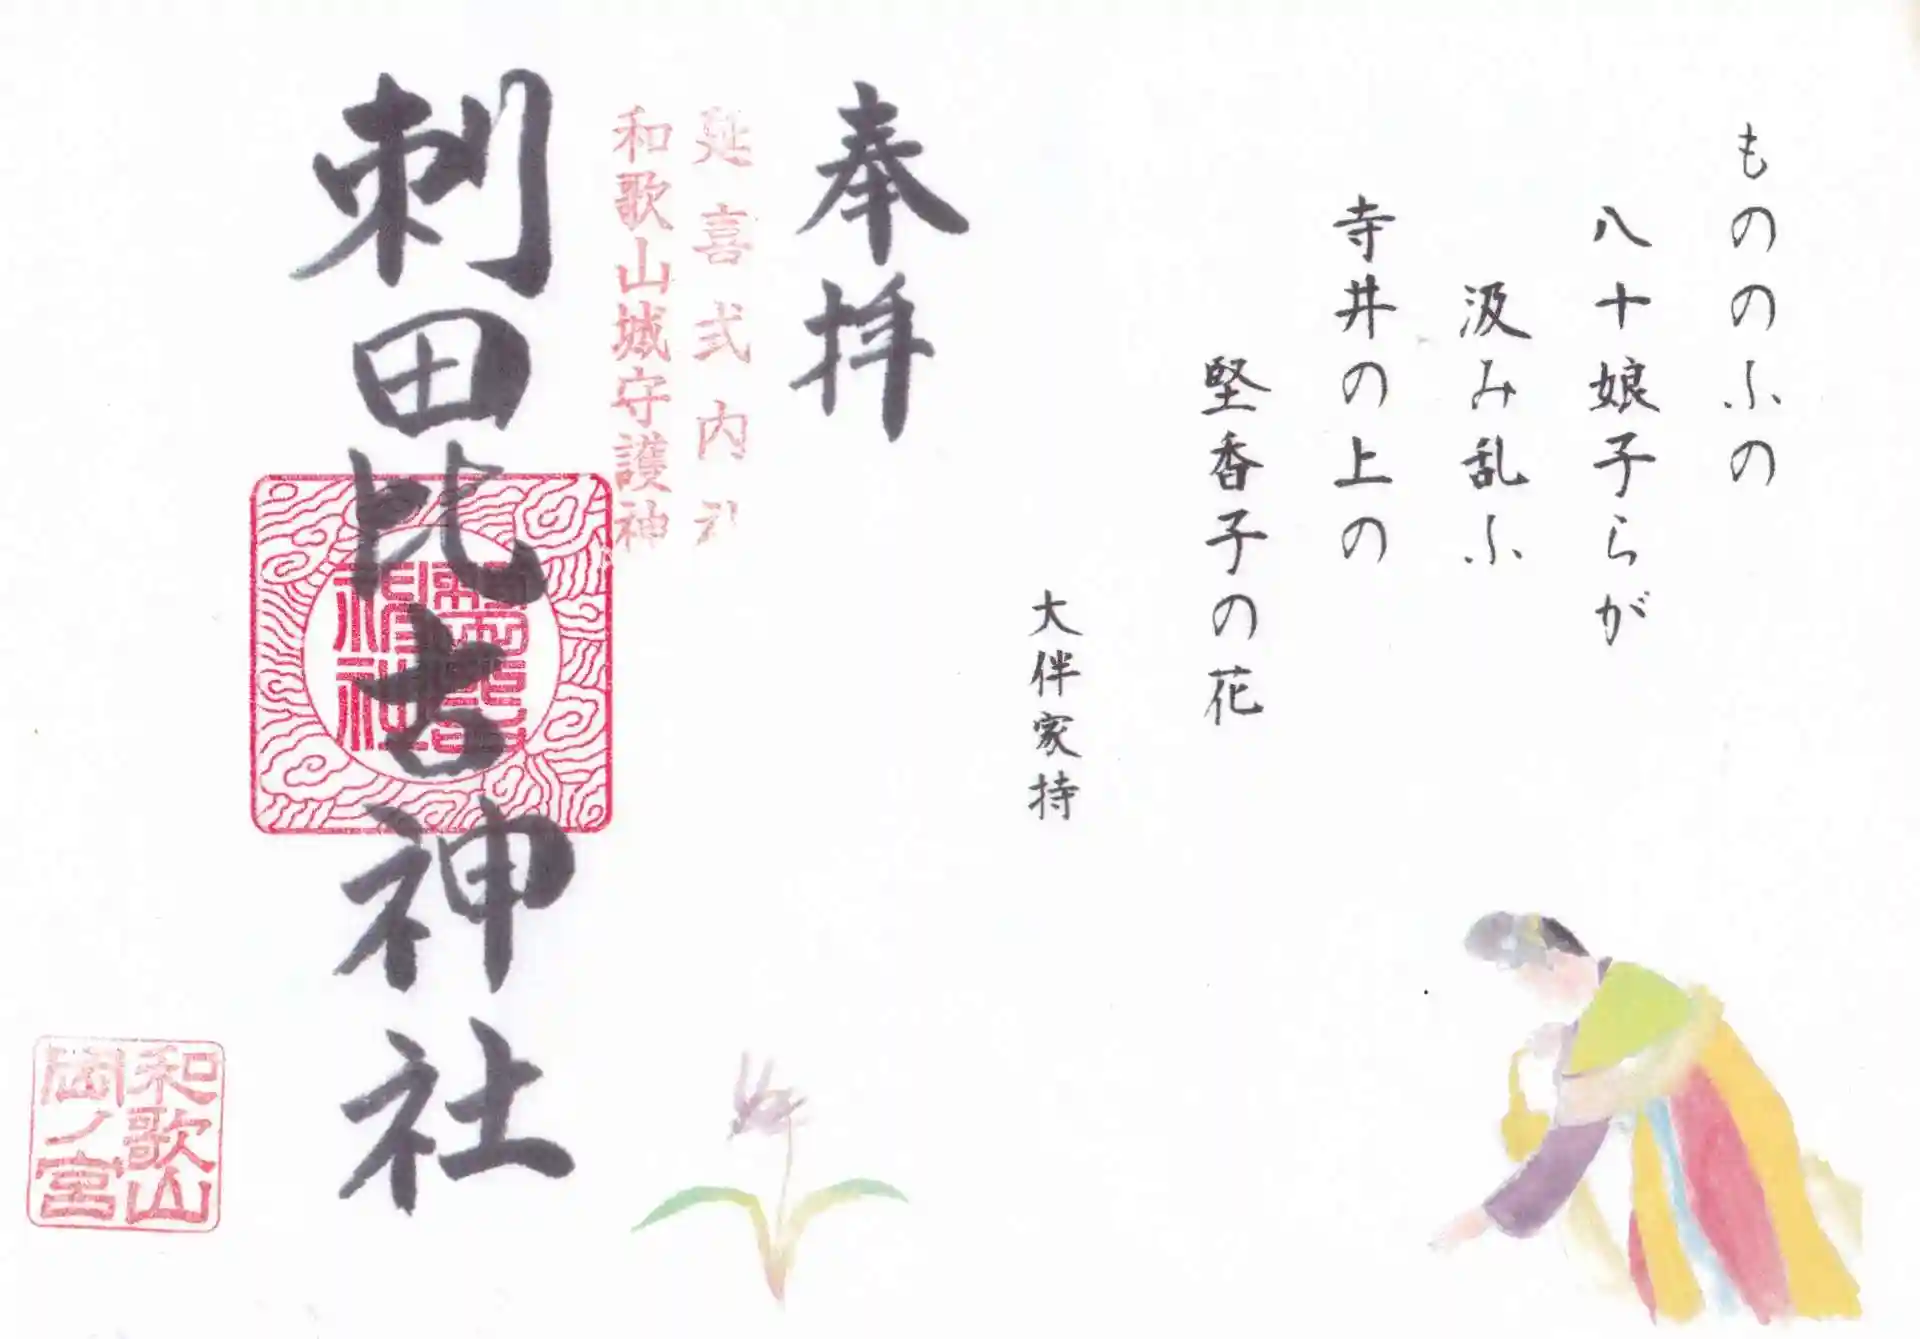 もののふの
八十娘子らが
汲み乱ふ
寺井の上の
堅香子の花
大伴家持
奉拝
延喜式内社
和歌山城守護神
刺田比古神社
和歌山
岡ノ宮